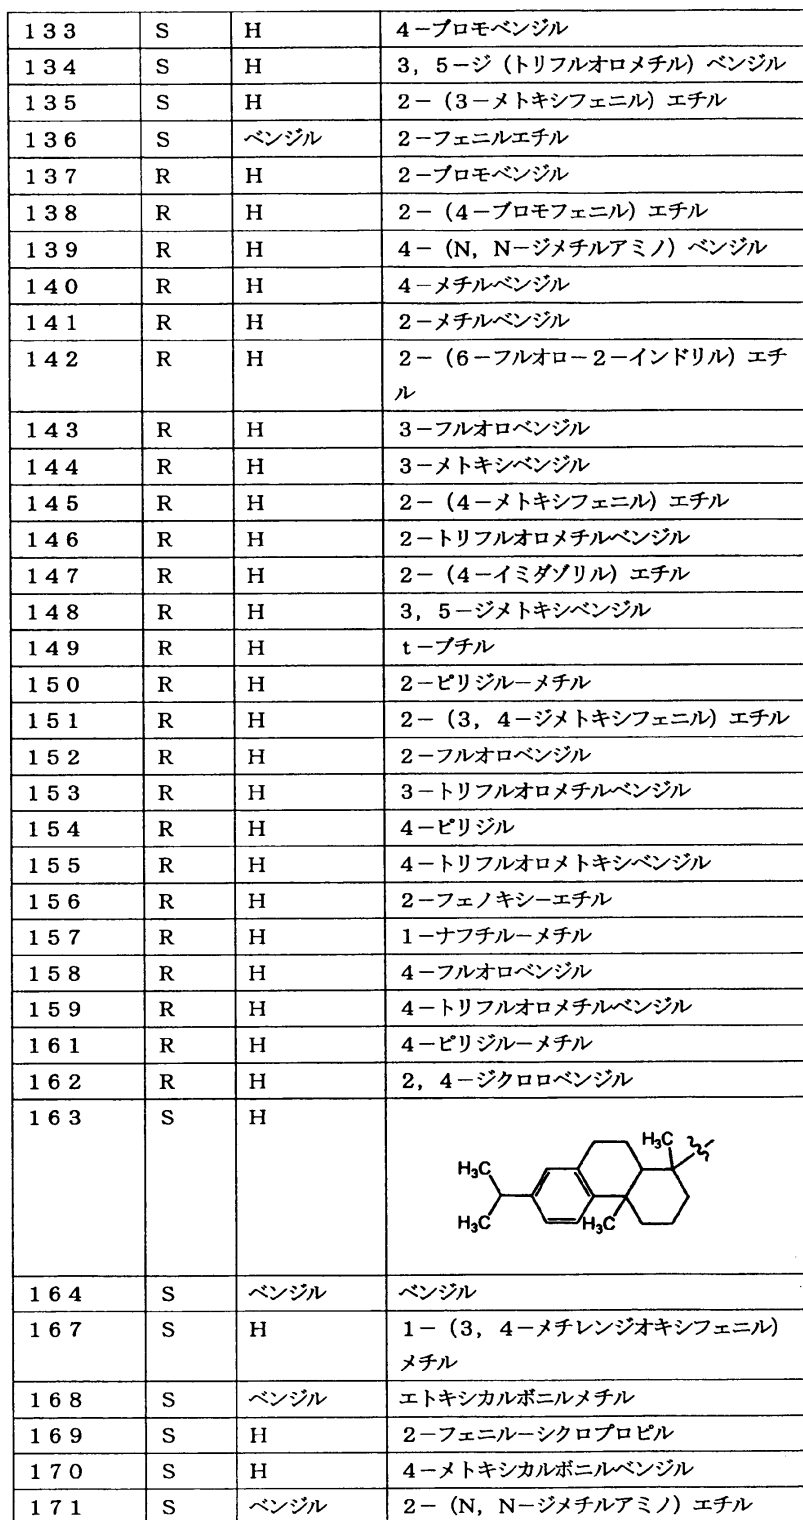 133 S H 4-ブロモベンジル
134 S H 3,5-ジ(トリフルオロメチル)ベンジル
135 S H 2-(3-メトキシフェニル)エチル
136 S ベンジル 2-フェニルエチル
137 R H 2-ブロモベンジル
138 R H 2-(4-ブロモフェニル)エチル
139 R H 4-(N,N-ジメチルアミノ)ベンジル
140 R H 4-メチルベンジル
141 R H 2-メチルベンジル
142 R H 2-(6-フルオロ-2-インドリル)エチ
ル
143 R H 3-フルオロベンジル
144 R H 3-メトキシベンジル
145 R H 2-(4-メトキシフェニル)エチル
146 R H 2-トリフルオロメチルベンジル
147 R H 2-(4-イミダゾリル)エチル
148 R H 3,5-ジメトキシベンジル
149 R H t-ブチル
150 R H 2-ピリジル-メチル
151 R H 2-(3,4-ジメトキシフェニル)エチル
152 R H 2-フルオロベンジル
153 R H 3-トリフルオロメチルベンジル
154 R H 4-ピリジル
155 R H 4-トリフルオロメトキシベンジル
156 R H 2-フェノキシ-エチル
157 R H 1-ナフチル-メチル
158 R H 4-フルオロベンジル
159 R H 4-トリフルオロメチルベンジル
161 R H 4-ピリジル-メチル
162 R H 2,4-ジクロロベンジル
163 S H
H₃C
H₃C
H₃C
H₃C
164 S ベンジル ベンジル
167 S H 1-(3,4-メチレンジオキシフェニル)
メチル
168 S ベンジル エトキシカルボニルメチル
169 S H 2-フェニル-シクロプロピル
170 S H 4-メトキシカルボニルベンジル
171 S ベンジル 2-(N,N-ジメチルアミノ)エチル